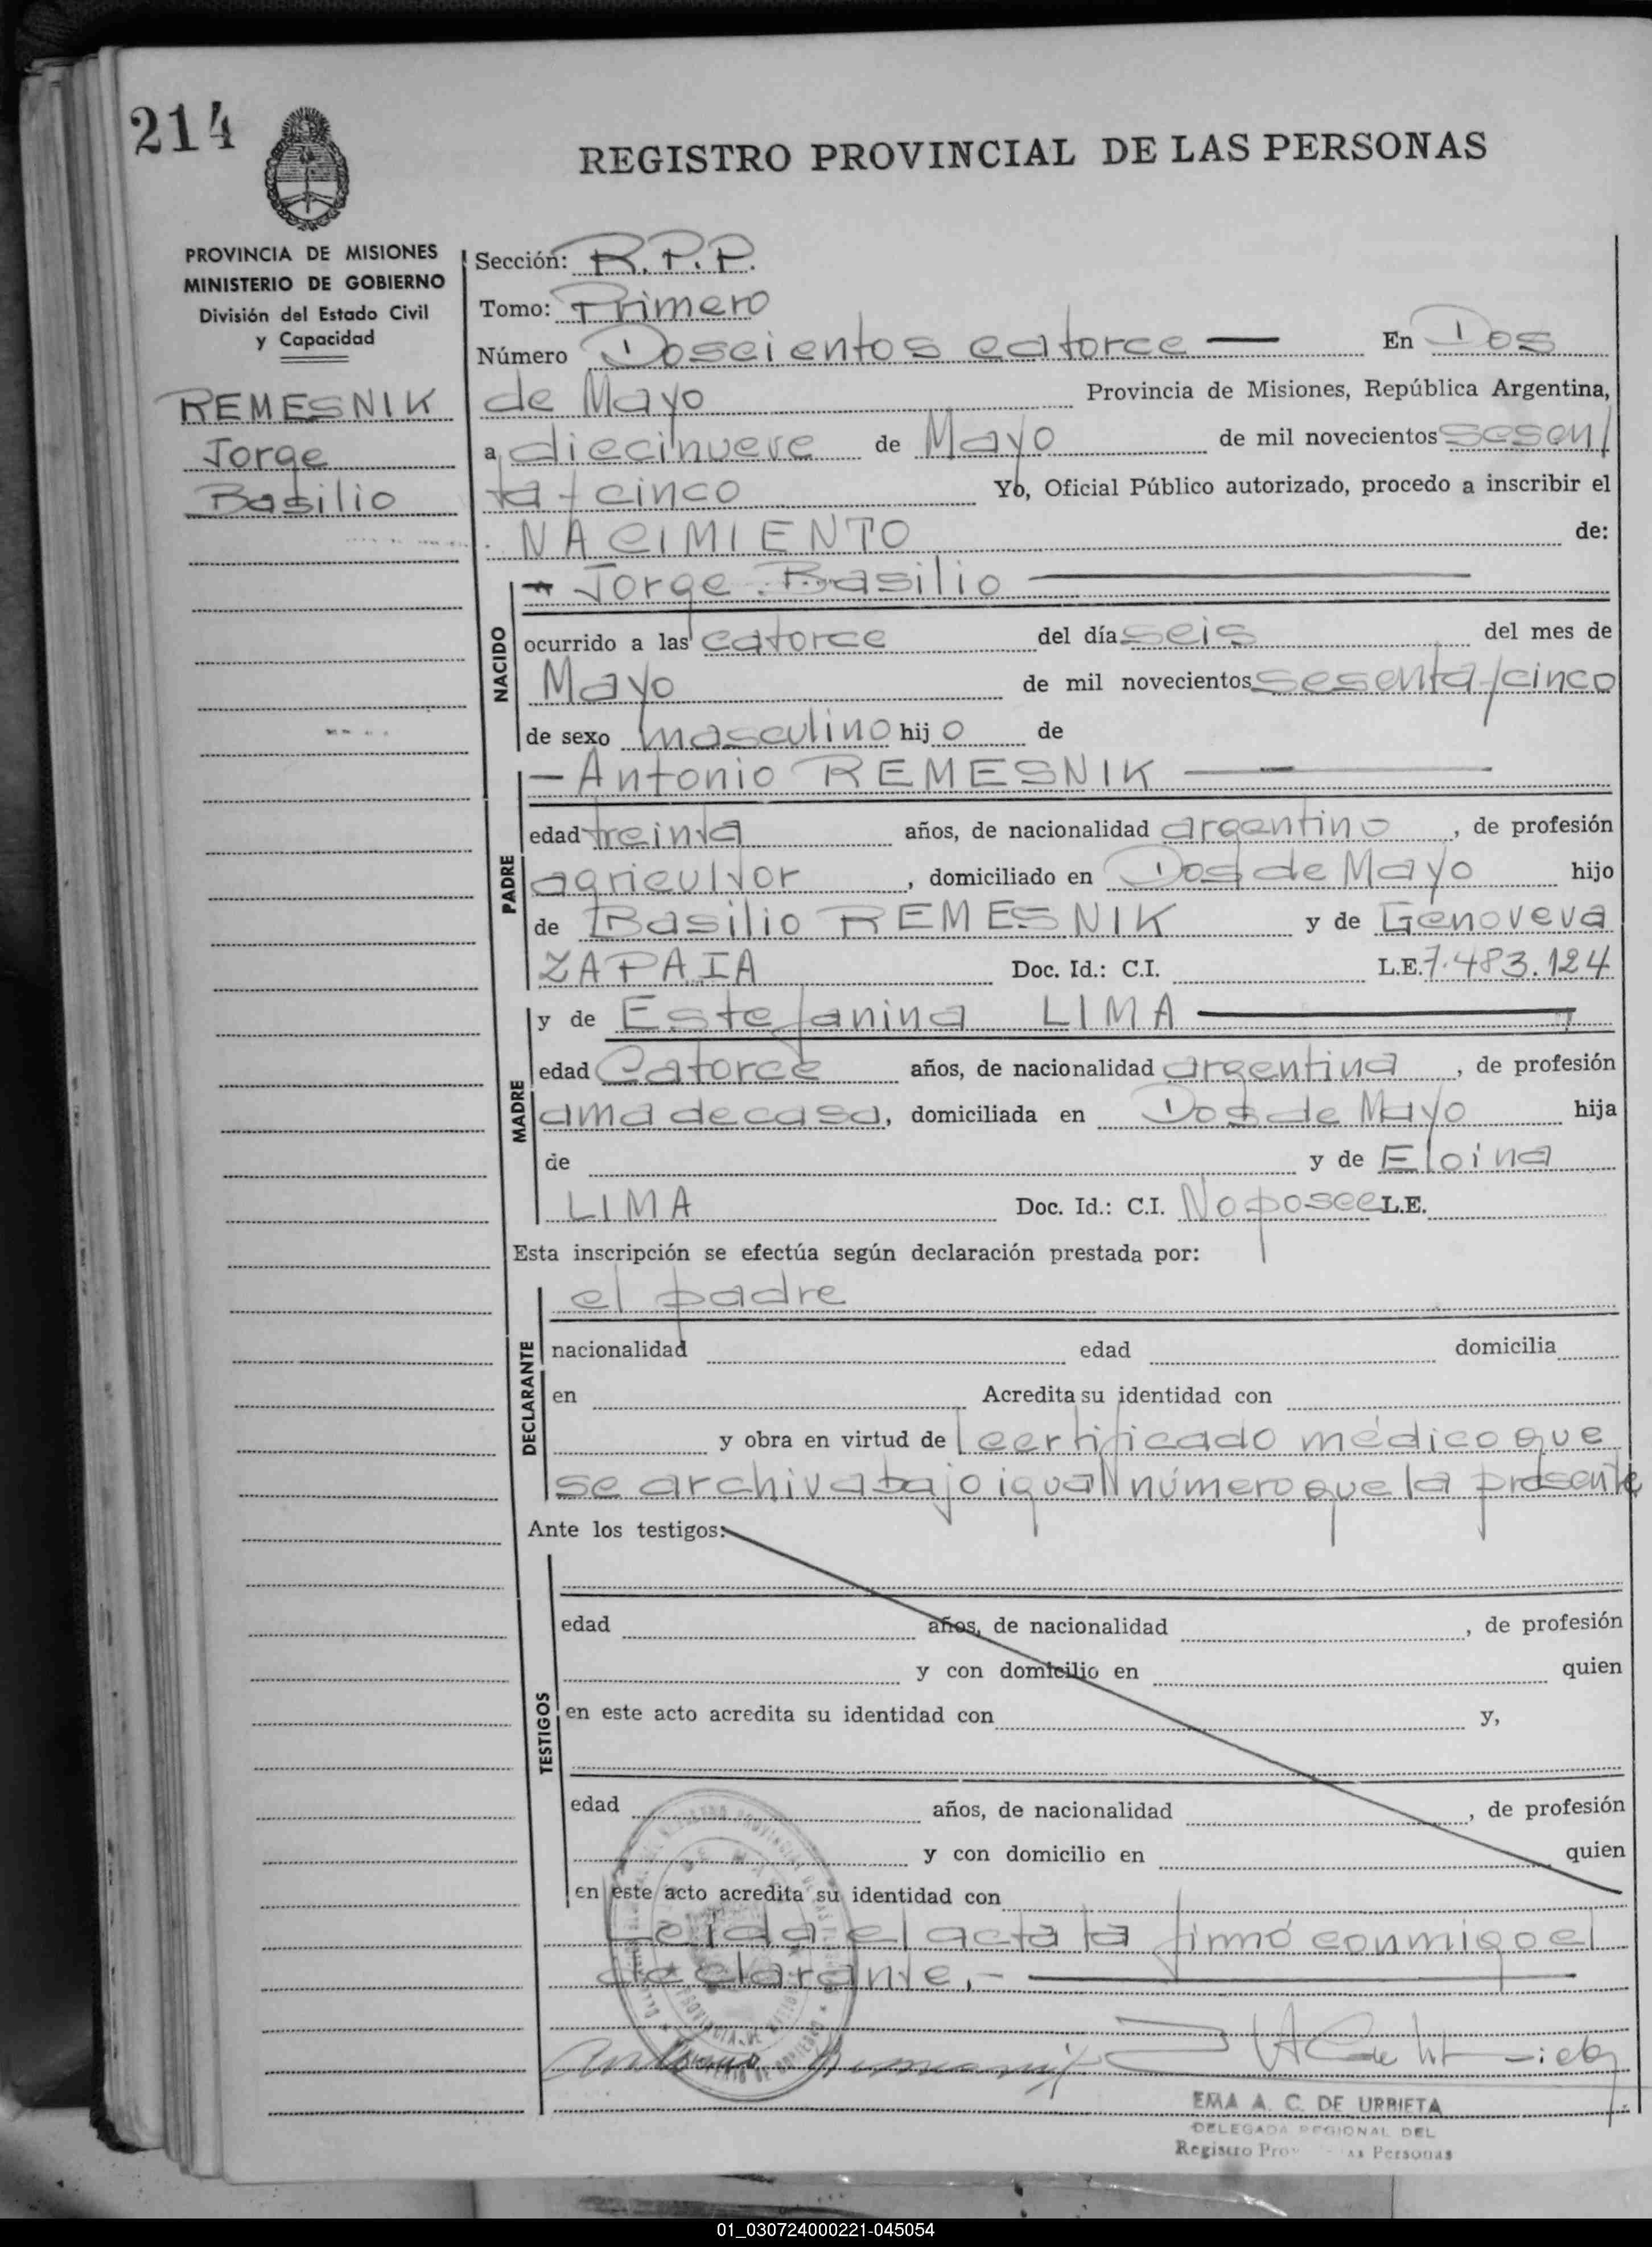 214
REGISTRO PROVINCIAL DE LAS PERSONAS
PROVINCIA DE MISIONES
MINISTERIO DE GOBIERNO
División del Estado Civil
y Capacidad
REMESNIK
Jorge
Basilio
Sección: R.P.P.
Tomo: Primero
Número Doscientos catorce — En Dos
de Mayo Provincia de Misiones, República Argentina,
a diecinueve de Mayo de mil novecientos sesen/
ta y cinco Yo, Oficial Público autorizado, procedo a inscribir el
NACIMIENTO de:
NACIDO
— Jorge Basilio —
ocurrido a las catorce del día seis del mes de
Mayo de mil novecientos sesenta y cinco
de sexo masculino hijo de
PADRE
— Antonio REMESNIK —
edad treinta años, de nacionalidad argentino, de profesión
agricultor, domiciliado en Dos de Mayo hijo
de Basilio REMESNIK y de Genoveva
ZAPAIA Doc. Id.: C.I. L.E. 7.483.124
MADRE
y de Estefanina LIMA —
edad Catorce años, de nacionalidad argentina, de profesión
ama de casa, domiciliada en Dos de Mayo hija
de y de Eloina
LIMA Doc. Id.: C.I. No posee L.E.
Esta inscripción se efectúa según declaración prestada por:
DECLARANTE
el padre
nacionalidad edad domicilia
en Acredita su identidad con
y obra en virtud de certificado médico que
se archiva bajo igual número que la presente
Ante los testigos:
TESTIGOS
edad años, de nacionalidad , de profesión
y con domicilio en quien
en este acto acredita su identidad con y,
edad años, de nacionalidad , de profesión
y con domicilio en quien
en este acto acredita su identidad con
Leida el acta la firmó conmigo el
declarante.- —
EMA A. C. DE URBIETA
DELEGADA REGIONAL DEL
Registro Personas
01_030724000221-045054